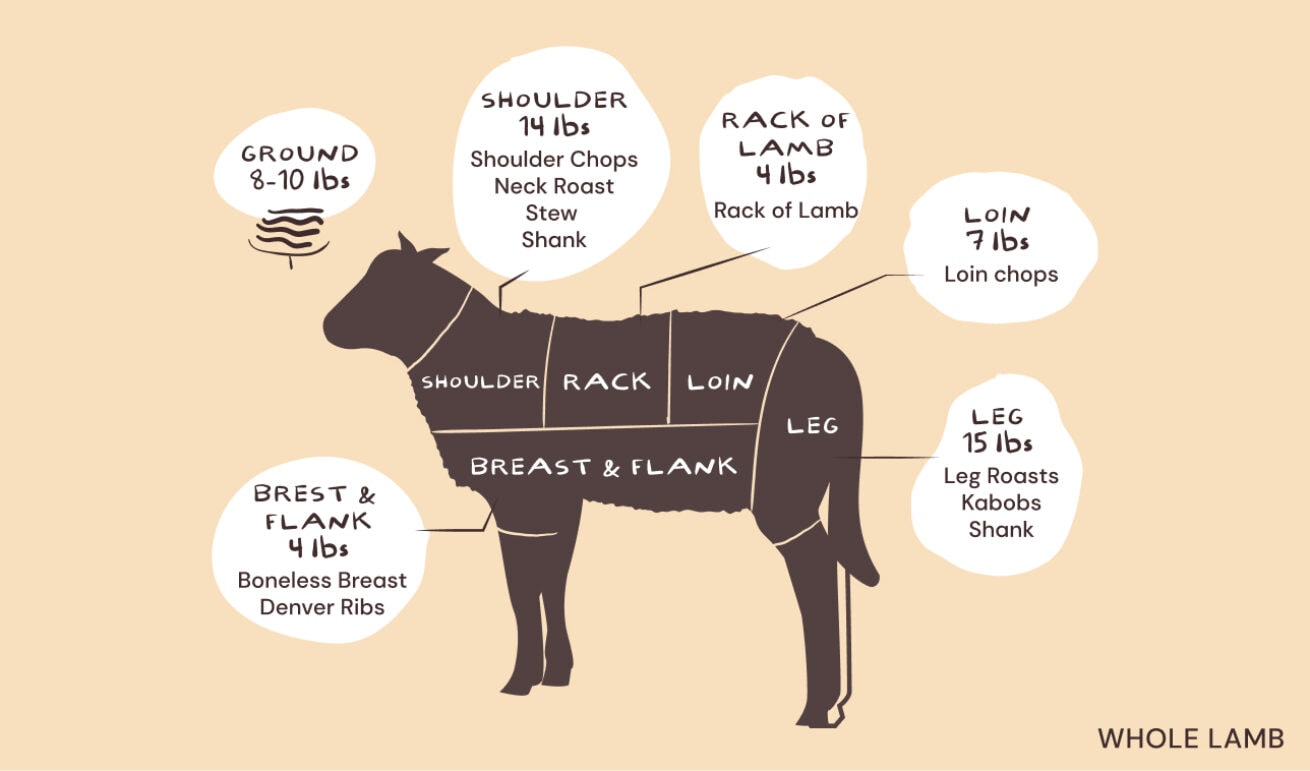 GROUND
8-10 lbs
SHOULDER
14 lbs
Shoulder Chops
Neck Roast
Stew
Shank
RACK OF
LAMB
4 lbs
Rack of Lamb
LOIN
7 lbs
Loin chops
SHOULDER
RACK
LOIN
LEG
BREAST & FLANK
LEG
15 lbs
Leg Roasts
Kabobs
Shank
BREST &
FLANK
4 lbs
Boneless Breast
Denver Ribs
WHOLE LAMB